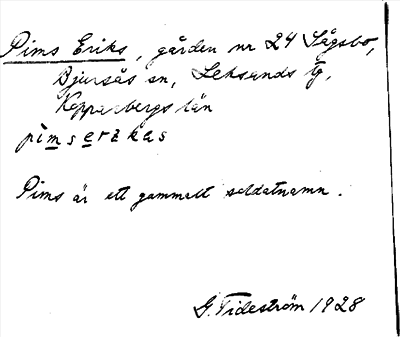 Pims Eriks, gården nr 24 Sågsbo,
Bjursås sn, Leksands tg,
Kopparbergs län
pìmserɩkas
Pims är ett gammalt soldatnamn.
G. Tideström 1928